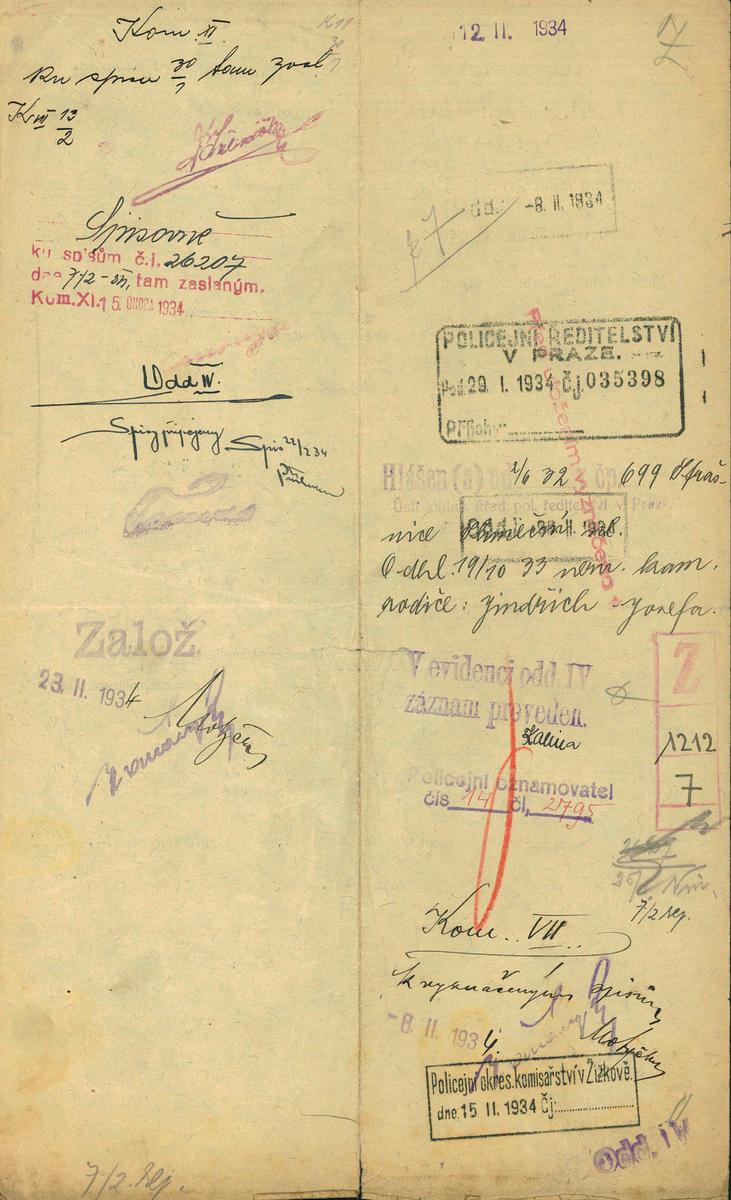 Kom. XI
ku spisu 30/1 tam zasl.
K VII 13/2
Spisovně
ku spisům č.j. 26207
dne 7/2 - tam zaslaným.
Kom. XI. 15. ÚNORA 1934
Odd IV.
Spisy připojeny
Spis 22/2 34
Založ
23. II. 1934
7/2. rep.
12 II. 1934
7
odd. -8. II. 1934
POLICEJNÍ ŘEDITELSTVÍ
V PRAZE.
Pod. 29. I. 1934 č.j. 035398
Přílohy
Hlášen(a) od 2/6 32 čp. 699 Straš-
Ústř. ohlaš. úřad. pol. ředitelství v Praze
nice
Odhl. 19/10 33 něm. kam.
rodiče: Jindřich Josefa.
V evidenci odd. IV
záznam proveden.
Kalina
Z
1212
7
Policejní oznamovatel
čís 14 čl. 2795
7/2 rep.
Kom. VII
k vyznačeným spisům
-8. II. 1934
Policejní okres. komisařství v Žižkově.
dne 15 II. 1934 Čj:
Odd. IV